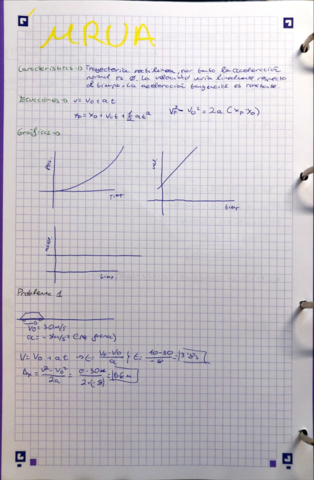 MRUA
Características → Trayectoria rectilínea, por tanto la aceleración
normal es 0. La velocidad varía linealmente respecto
al tiempo. La aceleración tangencial es constante.
Ecuaciones → v = v₀ + at
x₀ = x₀ + v₀t + ½at² vF² - v₀² = 2a (xF x₀)
Gráficas →
Pos.
Time
Vel.
time
Acel.
time
Problema 1
v₀ = 30m/s
V = V₀ + at → t =
Δx = v² - v₀² / 2a